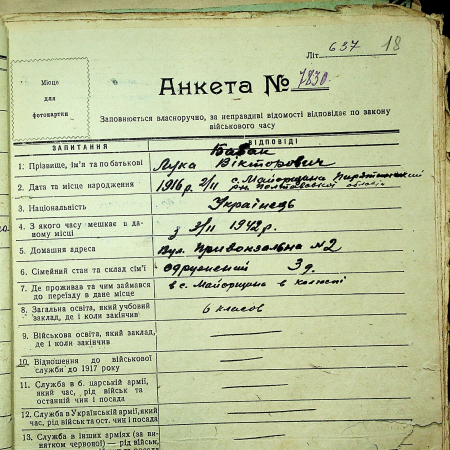 Літ. 637 18
Місце
для
фотокартки
Анкета № 7830
Заповнюється власноручно, за неправдиві відомості відповідає по закону
військового часу
ЗАПИТАННЯ ВІДПОВІДІ
1. Прізвище, ім'я та по батькові Лука Вікторович
2. Дата та місце народження 1916 р. 2/II с. Майорщина
рн Полтавської області
3. Національність Українець
4. З якого часу мешкає в да-
ному місці з 2/II 1942 р.
5. Домашня адреса Вул. Привокзальна № 2
6. Сімейний стан та склад сім'ї одружений 3 д.
7. Де проживав та чим займався
до переїзду в дане місце в с. Майорщина в колгоспі
8. Загальна освіта, який учбовий
заклад, де і коли закінчив 6 класов
9. Військова освіта, який заклад,
де і коли закінчив
10. Відношення до військової
служби до 1917 року
11. Служба в б. царській армії,
який час, рід військ та
останній чин і посада
12. Служба в Українській армії, який
час, рід військ та ост. чин і посада
13. Служба в інших арміях (за ви-
нятком червоної) — рід військ,